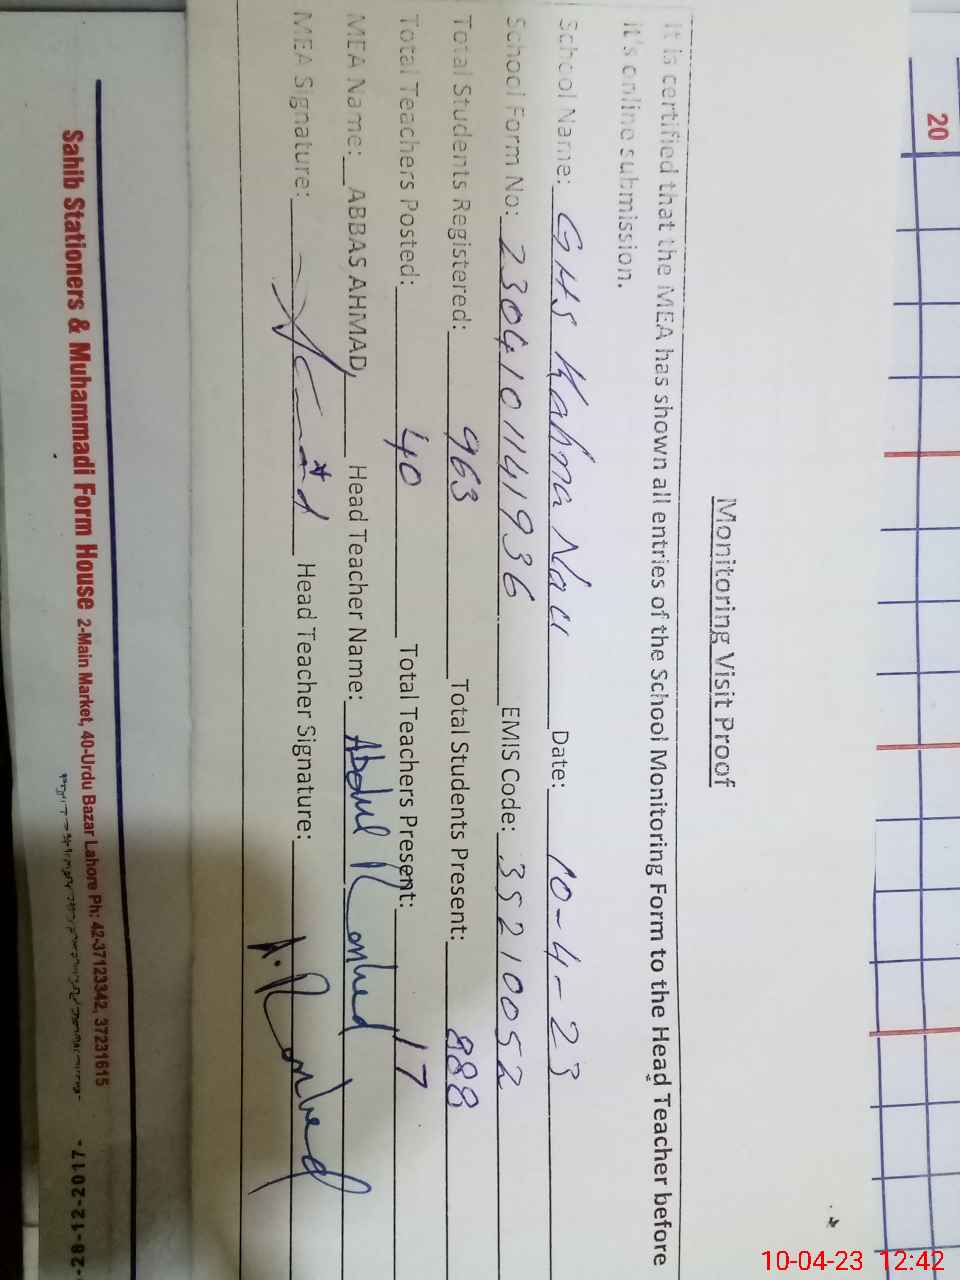 20
Monitoring Visit Proof
It is certified that the MEA has shown all entries of the School Monitoring Form to the Head Teacher before
it's online submission.
School Name: GHS Kahna Nau Date: 10-4-23
School Form No: 2304101141936 EMIS Code: 35210052
Total Students Registered: 963 Total Students Present: 888
Total Teachers Posted: 40 Total Teachers Present: 17
MEA Name: ABBAS AHMAD, Head Teacher Name: Abdul Rashed
MEA Signature: Head Teacher Signature: A. Rashed
Sahib Stationers & Muhammadi Form House 2-Main Market, 40-Urdu Bazar Lahore Ph: 42-37123342, 37231615
-28-12-2017-
10-04-23 12:42